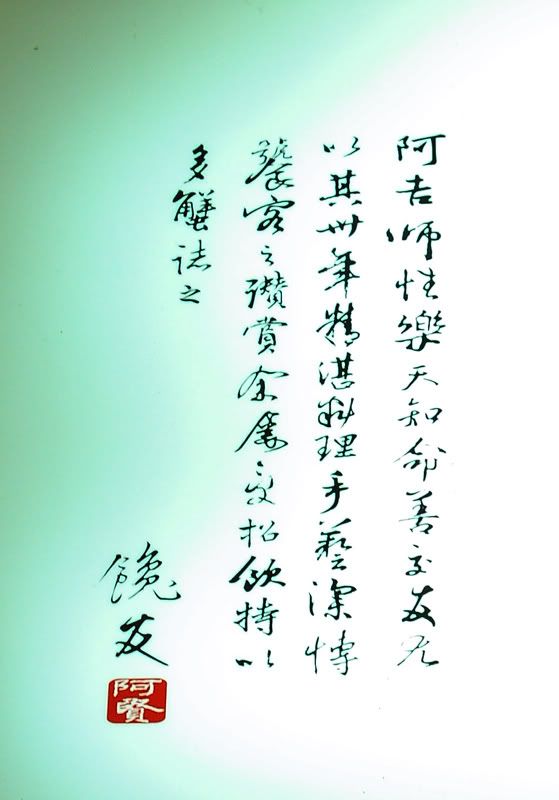 阿吉師性樂天知命善交友尤
以其卅年精湛料理手藝深博
饕客之讚賞余屢受招飲特以
多蟹誌之
饞友
阿賢